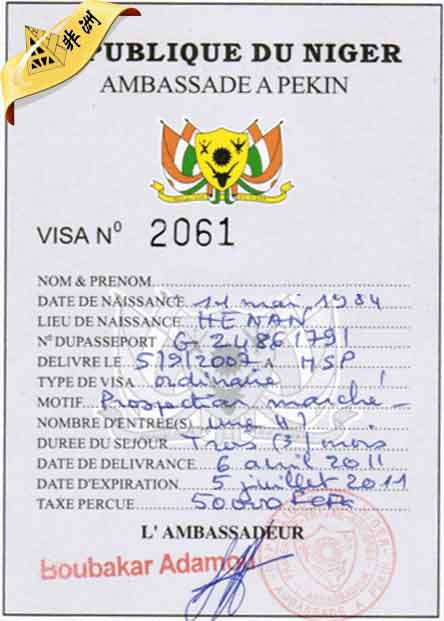 非洲
RÉPUBLIQUE DU NIGER
AMBASSADE A PEKIN
VISA N⁰ 2061
NOM & PRENOM
DATE DE NAISSANCE 11 mai 1984
LIEU DE NAISSANCE HENAN
N° DUPASSEPORT G-24861791
DELIVRE LE 5/9/2007 A MSP
TYPE DE VISA ordinaire
MOTIF Prospection marché
NOMBRE D'ENTRÉE(S) une
DUREE DU SEJOUR Trois (3) mois
DATE DE DELIVRANCE 6 avril 2011
DATE D'EXPIRATION 5 juillet 2011
TAXE PERCUE 50000 FCFA
L' AMBASSADEUR
Boubakar Adamou
AMBASSADE A PEKIN